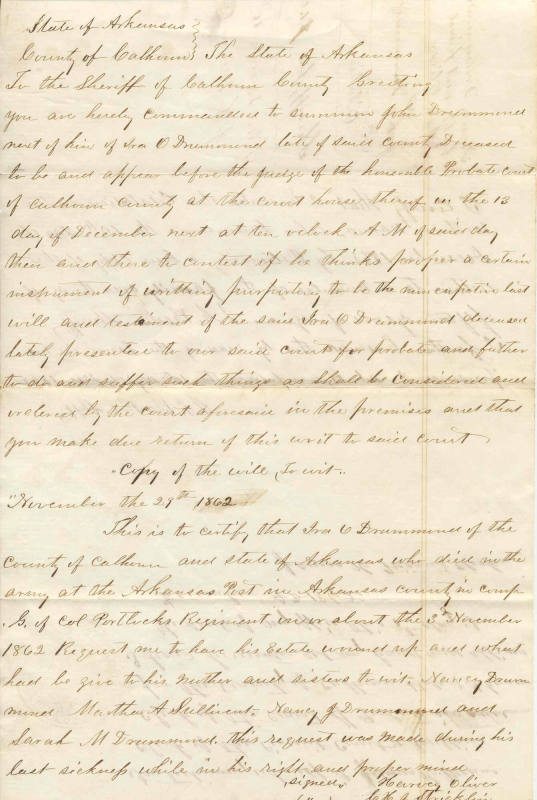 State of Arkansas }
County of Calhoun } The State of Arkansas
To the Sheriff of Calhoun County Greeting
you are hereby commanded to summon John Drummond
next of kin of Ira O Drummond late of said county Deceased
to be and appear before the judge of the honorable Probate court
of Calhoun County at the court house thereof on the 13
day of December next at ten oclock A. M of said day
then and there to contest if he thinks proper a certain
instrument of writting purporting to be the nuncupative last
will and testament of the said Ira O Drummond deceased
lately presented to our said court for probate and further
to do and suffer such things as shall be considered and
ordered by the court aforesaid in the premises and that
you make due return of this writ to said court
"Copy of the will, To wit..
"November the 29th 1862
This is to certify that Ira O Drummond of the
county of Calhoun and state of Arkansas who died in the
army at the Arkansas Post in Arkansas county in comp
G. of Col Portlocks Regiment on or about the November
1862 Request me to have his Estate wound up and what
had be give to his Mother and sisters to wit. Nancy Drum
mond Martha A Sullivent. Nancy J Drummond and
Sarah M Drummond. this request was made during his
last sickness while in his right and proper mind
signed, Harvey Oliver